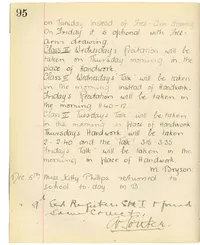 95
on Tuesday instead of Free-Arm Drawing
On Friday it is optional with free-
arm drawing.
Class III Wednesday's Recitation will be
taken on Thursday morning in the
place of Handwork.
Class II Wednesday's Talk will be taken
in the morning instead of Handwork.
Friday's Recitation will be taken in
the morning 9.40-10
Class II Tuesday's Talk will be taken
in the morning in place of Handwork
Thursday's Handwork will be taken
2-2.40 and the Talk 3.5-3.35
Friday's Talk will be taken in the
morning in place of Handwork.
M. Bryson
Dec. 6th Miss Kitty Phillips returned to
school to-day. M B
9th and Registers
found
Correct.